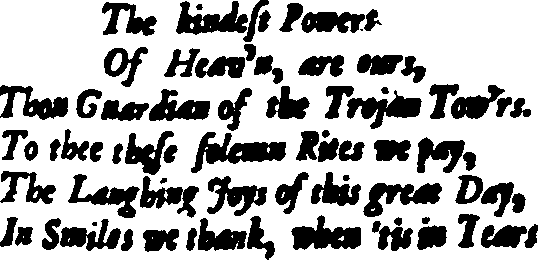 The kindeſt Powers
Of Heav'n, are ours,
Thou Guardian of the Trojan Tow'rs.
To thee theſe ſolemn Rites we pay,
The Laughing Joys of this great Day,
In Smiles we thank, when 'tis in Tears